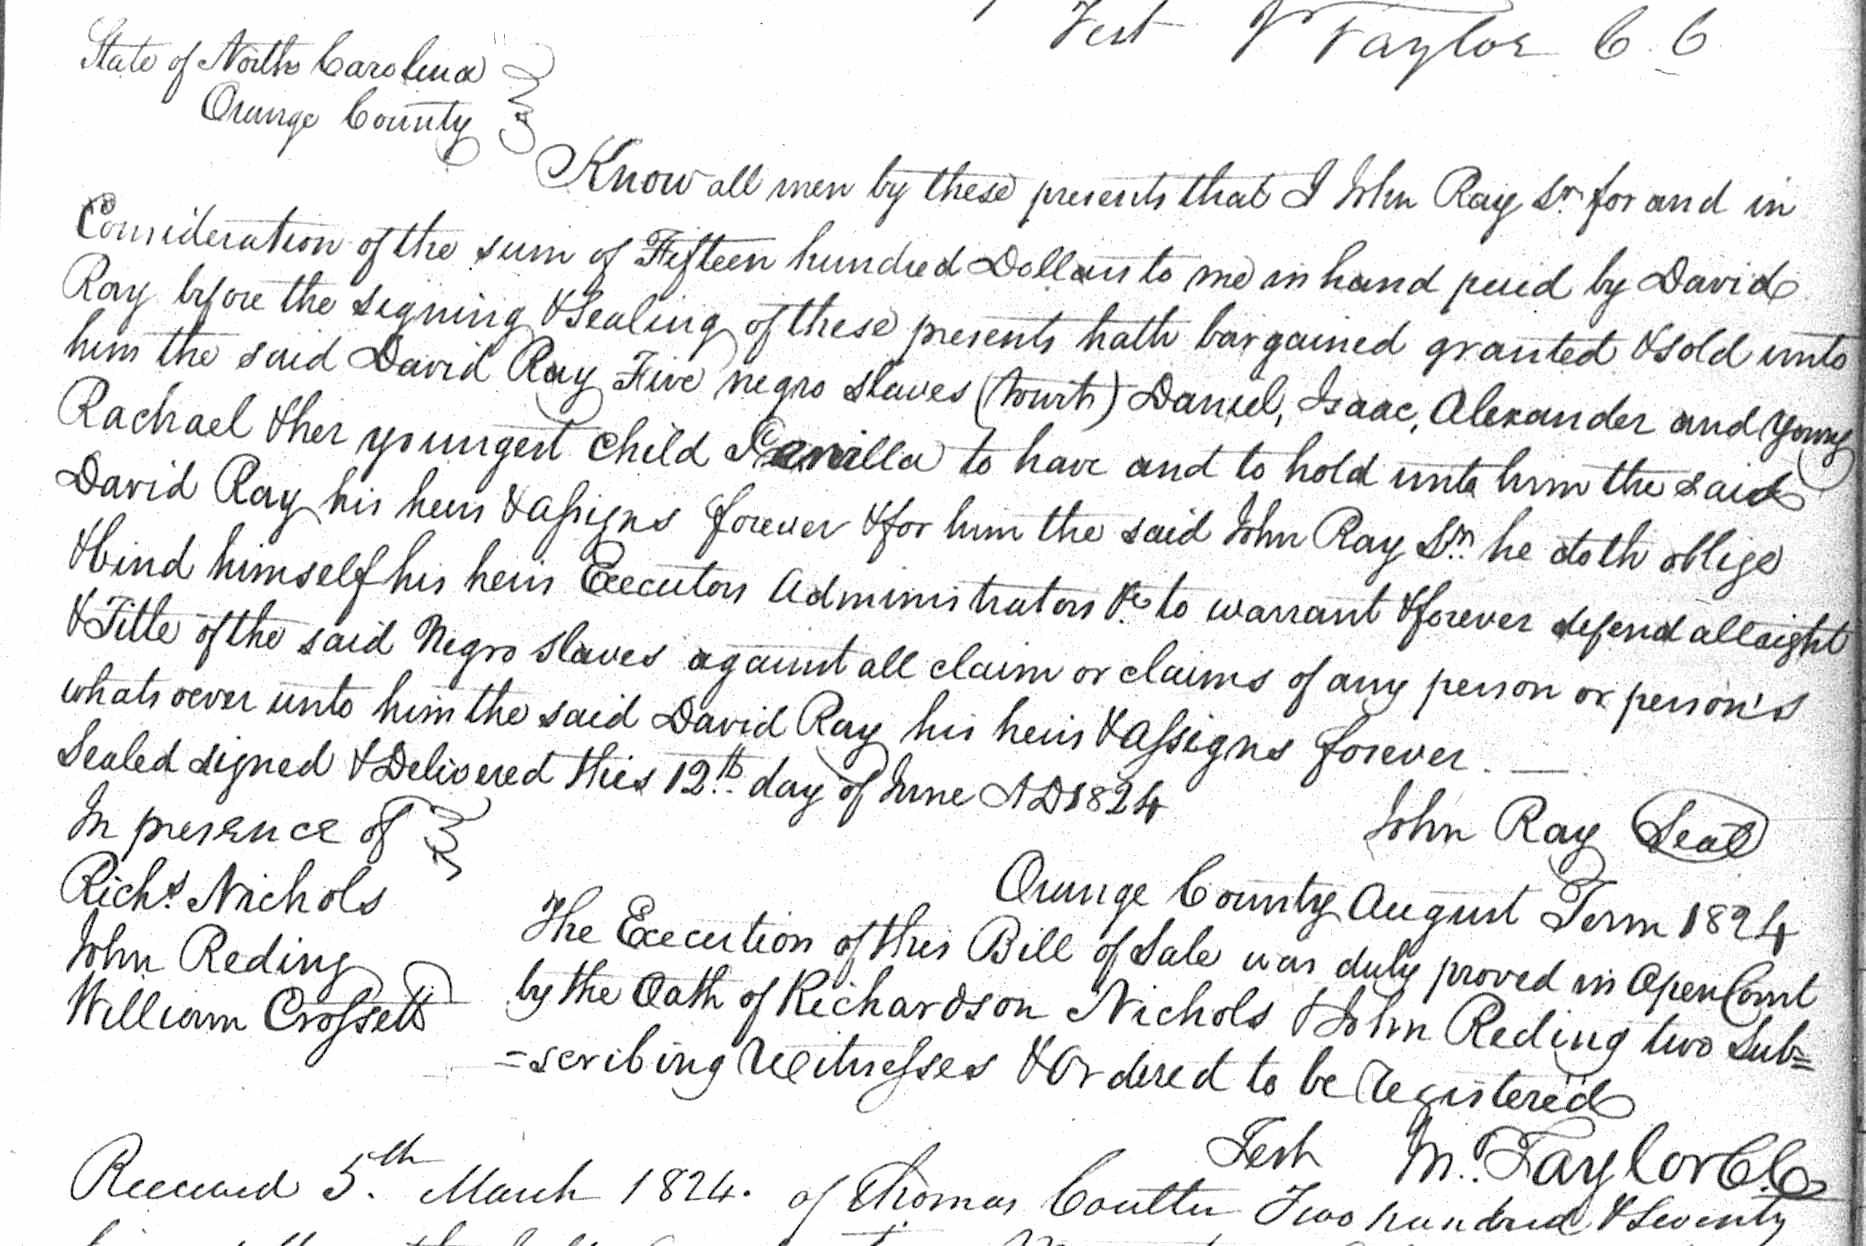 Test J Taylor C. C
State of North Carolina
Orange County
Know all men by these presents that I John Ray Sr. for and in
Consideration of the sum of Fifteen hundred Dollars to me in hand paid by David
Ray before the signing & Sealing of these presents hath bargained granted & sold unto
him the said David Ray Five negro slaves (towit) Daniel, Isaac, Alexander and Young
Rachael & her youngest child to have and to hold unto him the said
David Ray his heirs & assigns forever & for him the said John Ray Sr. he doth oblige
& bind himself his heirs Executors Administrators &c to warrant & forever defend all right
& Title of the said Negro slaves against all claim or claims of any person or person's
whatsoever unto him the said David Ray his heirs & assigns forever. —
Sealed signed & Delivered this 12th day of June AD 1824
In presence of
John Ray Seal
Richd. Nichols
John Reding
William Crossett
Orange County August Term 1824
The Execution of this Bill of Sale was duly proved in Open Court
by the Oath of Richardson Nichols & John Reding two Sub=
=scribing Witnesses & Ordered to be registered
Test M. Taylor C.C.
Received 5th March 1824. of Thomas Coulter Two hundred & Seventy